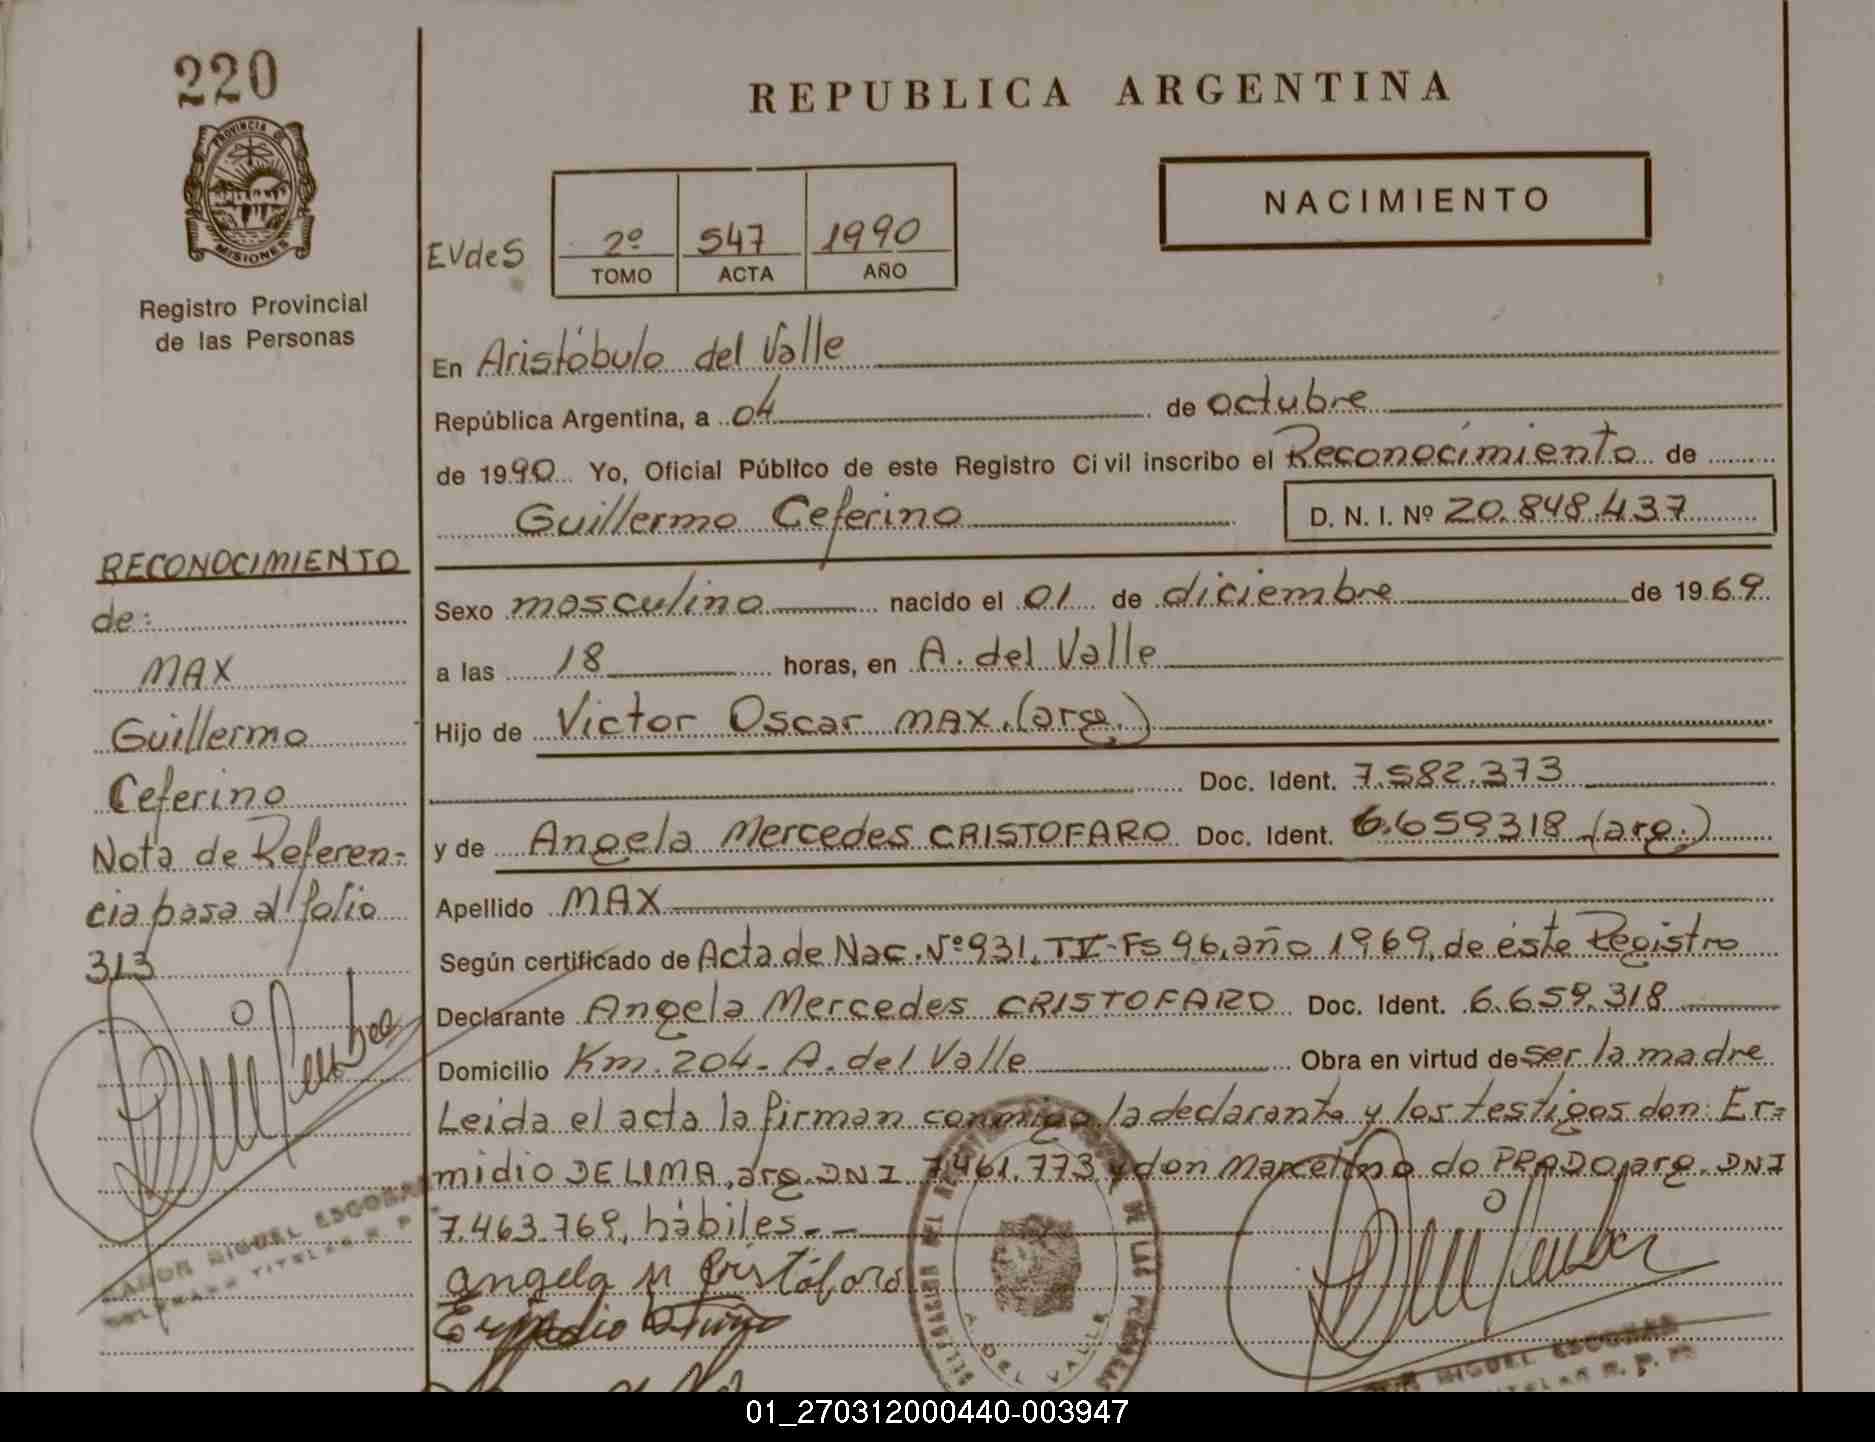 220
PROVINCIA DE
MISIONES
Registro Provincial
de las Personas
REPUBLICA ARGENTINA
NACIMIENTO
EVdeS
2º 547 1990
TOMO ACTA AÑO
En Aristóbulo del Valle
República Argentina, a 04 de octubre
de 1990 Yo, Oficial Público de este Registro Civil inscribo el Reconocimiento de
Guillermo Ceferino
D. N. I. Nº 20.848.437
Sexo masculino nacido el 01 de diciembre de 1969
a las 18 horas, en A. del Valle
Hijo de Victor Oscar MAX.(arg.)
Doc. Ident. 7.582.373
y de Angela Mercedes CRISTOFARO Doc. Ident. 6.659318 (arg.)
Apellido MAX
Según certificado de Acta de Nac. Nº 931, TIV-Fs 96, año 1969, de éste Registro
Declarante Angela Mercedes CRISTOFARO Doc. Ident. 6.659.318
Domicilio Km. 204- A. del Valle Obra en virtud de ser la madre
Leida el acta la firman conmigo la declarante y los testigos don: Er=
midio DE LIMA, arg. DNI 7.461.773 y don Marcelino do PRADO, arg. DNI
7.463.769, hábiles.- -
angela M Cristófaro
Ermidio
RECONOCIMIENTO
de:
MAX
Guillermo
Ceferino
Nota de Referen-
cia pasa al folio
313
MIGUEL ESCOBAR
TITULAR R. P.
DE LAS PERSONAS
A. DEL VALLE
MIGUEL ESCOBAR
R. P. P.
01_270312000440-003947